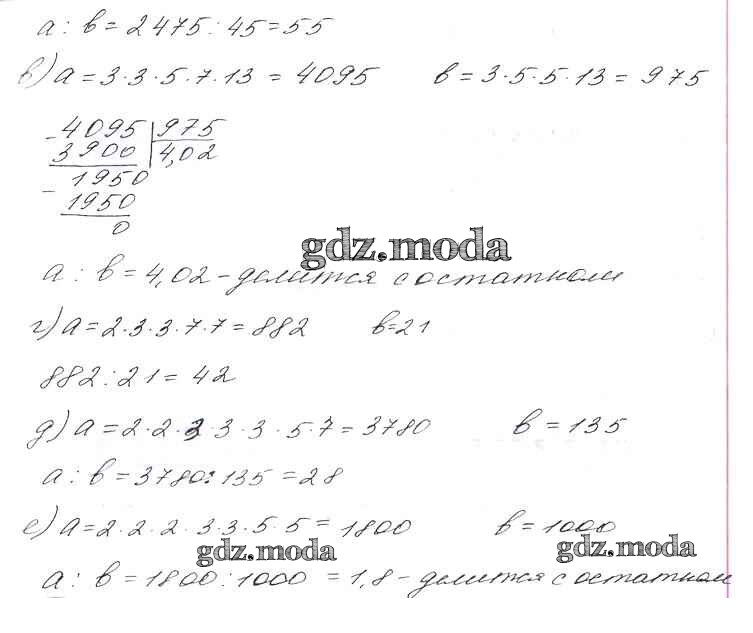 а : в = 2475 : 45 = 55
в) а = 3·3·5·7·13 = 4095 в = 3·5·5·13 = 975
- 4095 | 975
3900 | 4,02
- 1950
1950
0
gdz.moda
а : в = 4,02 - делится с остатком
г) а = 2·3·3·7·7 = 882 в = 21
882 : 21 = 42
д) а = 2·2·3·3·3·5·7 = 3780 в = 135
а : в = 3780 : 135 = 28
е) а = 2·2·2·3·3·5·5 = 1800 в = 1000
gdz.moda gdz.moda
а : в = 1800 : 1000 = 1,8 - делится с остатком